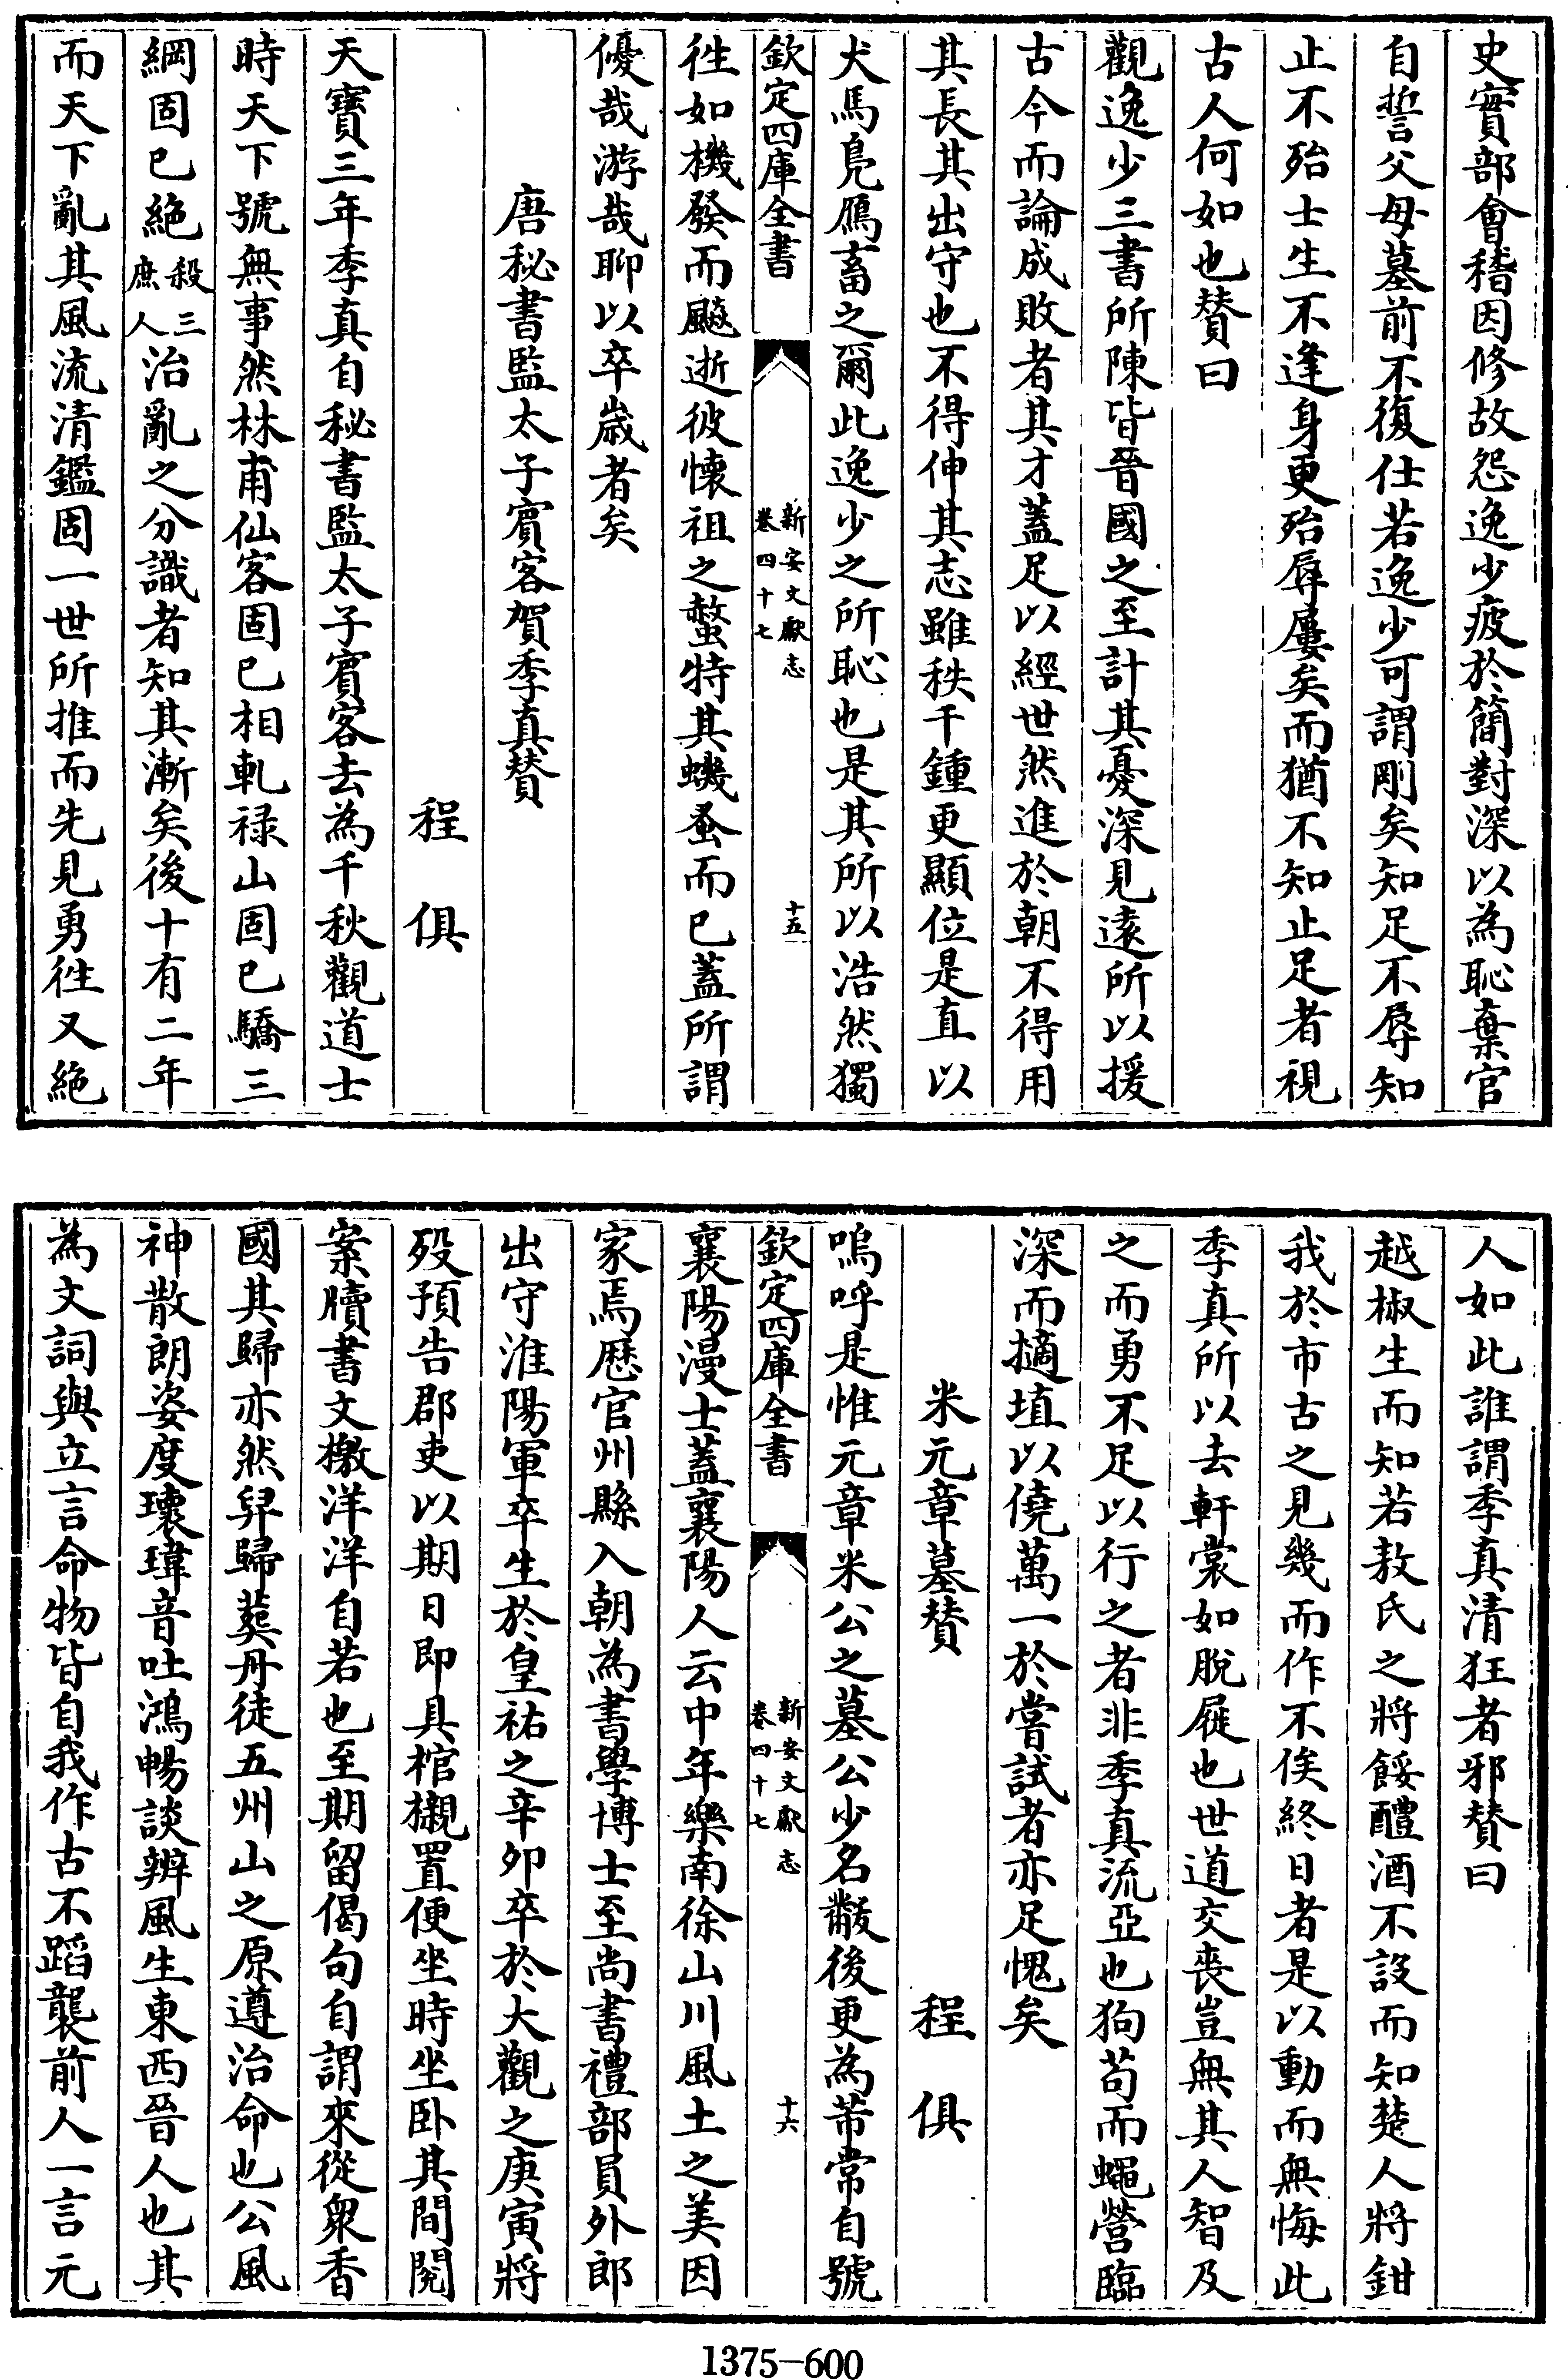 史實部會稽因修故怨逸少疲於簡對深以為恥棄官
自誓父母墓前不復仕若逸少可謂剛矣知足不辱知
止不殆士生不逢身更殆辱屢矣而猶不知止足者視
古人何如也贊曰
觀逸少三書所陳皆晉國之至計其憂深見遠所以援
古今而論成敗者其才蓋足以經世然進於朝不得用
其長其出守也不得伸其志雖秩千鍾更顯位是直以
犬馬鳧鴈畜之爾此逸少之所恥也是其所以浩然獨
欽定四庫全書
新安文獻志
卷四十七
十五
徃如機發而飈逝彼懐祖之螫特其蟣蚤而已蓋所謂
優哉游哉聊以卒歲者矣
唐秘書監太子賓客賀季真贊
程俱
天寶三年季真自秘書監太子賓客去為千秋觀道士
時天下號無事然林甫仙客固已相軋禄山固已驕三
綱固已絶殺三庶人治亂之分識者知其漸矣後十有二年
而天下亂其風流清鑑固一世所推而先見勇徃又絶
人如此誰謂季真清狂者邪贊曰
越椒生而知若敖氏之將餒醴酒不設而知楚人將鉗
我於市古之見幾而作不俟終日者是以動而無悔此
季真所以去軒裳如脫屣也世道交喪豈無其人智及
之而勇不足以行之者非季真流亞也狗苟而蠅營臨
深而擿埴以僥萬一於嘗試者亦足愧矣
米元章墓贊
程俱
嗚呼是惟元章米公之墓公少名黻後更為芾常自號
欽定四庫全書
新安文獻志
卷四十七
十六
襄陽漫士蓋襄陽人云中年樂南徐山川風土之美因
家焉歴官州縣入朝為書學博士至尚書禮部員外郎
出守淮陽軍卒生於皇祐之辛卯卒於大觀之庚寅將
殁預告郡吏以期日即具棺櫬置便坐時坐卧其間閱
案牘書文檄洋洋自若也至期留偈句自謂來從衆香
國其歸亦然舁歸葬丹徒五州山之原遵治命也公風
神散朗姿度瓌瑋音吐鴻暢談辨風生東西晉人也其
為文詞與立言命物皆自我作古不蹈襲前人一言元
1375-600